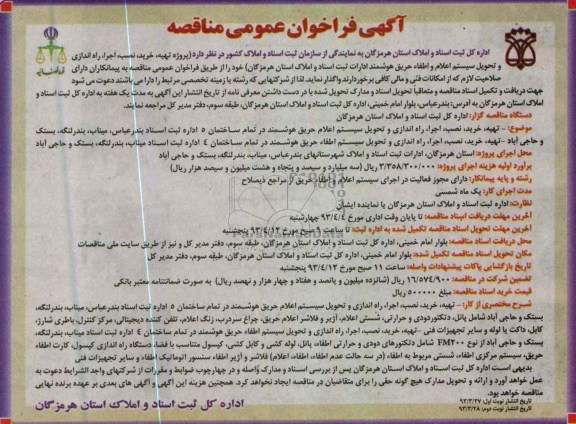 آگهی فراخوان عمومی مناقصه
اداره کل ثبت اسناد و املاک استان هرمزگان به نمایندگی از سازمان ثبت اسناد و املاک کشور در نظر دارد (پروژه تهیه، خرید، نصب، اجرا، راه اندازی
و تحویل سیستم اعلام و اطفاء حریق هوشمند ادارات ثبت اسناد و املاک استان هرمزگان) خود را از طریق فراخوان عمومی مناقصه به پیمانکاران دارای
صلاحیت لازم که از امکانات فنی و مالی کافی برخوردارند واگذار نماید. لذا از شرکتهایی که رشته یا زمینه تخصصی مرتبط را دارا می باشند دعوت می شود
جهت دریافت و تکمیل اسناد مناقصه و متعاقباً تحویل اسناد و مدارک تحویل شده با در دست داشتن معرفی نامه از تاریخ انتشار این آگهی به مدت یک هفته به اداره کل ثبت اسناد و
املاک استان هرمزگان به آدرس: بندرعباس، بلوار امام خمینی، اداره کل ثبت اسناد و املاک استان هرمزگان، طبقه سوم، دفتر مدیر کل مراجعه نمایند.
دستگاه مناقصه گزار: اداره کل ثبت اسناد و املاک استان هرمزگان
موضوع: - تهیه، خرید، نصب، اجرا، راه اندازی و تحویل سیستم اعلام حریق هوشمند در تمام ساختمان ۵ اداره ثبت اسناد بندرعباس، میناب، بندرلنگه، بستک
و حاجی آباد - تهیه، خرید، نصب، اجرا، راه اندازی و تحویل سیستم اطفاء حریق هوشمند در تمام ساختمان ۴ اداره ثبت اسناد میناب، بندرلنگه، بستک و حاجی آباد
محل اجرای پروژه: استان هرمزگان، ادارات ثبت اسناد و املاک شهرستانهای بندرعباس، میناب، بندرلنگه، بستک و حاجی آباد
برآورد اولیه هزینه اجرای پروژه: ۳/۳۵۸/۳۰۰/۰۰۰ ریال (سه میلیارد و سیصد و پنجاه و هشت میلیون و سیصد هزار ریال)
رشته و پایه پیمانکار: دارای مجوز فعالیت در اجرای سیستم اعلام و اطفاء حریق از مراجع ذیصلاح
مدت اجرای کار: یک ماه شمسی
نظارت: اداره کل ثبت اسناد و املاک استان هرمزگان یا نماینده ایشان
آخرین مهلت دریافت اسناد مناقصه: تا پایان وقت اداری مورخ ۹۳/۴/۴ چهارشنبه
آخرین مهلت تحویل اسناد مناقصه تکمیل شده به اداره ثبت: تا ساعت ۹ صبح مورخ ۹۳/۴/۱۲ پنجشنبه
محل دریافت اسناد مناقصه: بلوار امام خمینی، اداره کل ثبت اسناد و املاک استان هرمزگان، طبقه سوم، دفتر مدیر کل و نیز از طریق سایت ملی مناقصات
مکان تحویل اسناد مناقصه تکمیل شده: بلوار امام خمینی، اداره کل ثبت اسناد و املاک استان هرمزگان، طبقه سوم، دفتر مدیر کل
تاریخ بازگشایی پاکات پیشنهادات واصله: ساعت ۱۱ صبح مورخ ۹۳/۴/۱۲ پنجشنبه
تضمین شرکت در مناقصه: ۱۶/۵۷۴/۹۰۰ ریال (شانزده میلیون و پانصد و هفتاد و چهار هزار و نهصد ریال) به صورت ضمانتنامه معتبر بانکی
قیمت خرید اسناد مناقصه: مبلغ ۵۰۰۰۰۰ ریال
شرح مختصری از کار: - تهیه، خرید، نصب، اجرا، راه اندازی و تحویل سیستم اعلام حریق هوشمند در تمام ساختمان ۵ اداره ثبت اسناد بندرعباس، میناب، بندرلنگه،
بستک و حاجی آباد شامل پانل، دتکتوردودی و حرارتی، شستی اعلام، آژیر و فلاشر اعلام حریق، چراغ سردرب، زنگ اعلام، تلفن کننده دیجیتالی، مرکز کنترل، باطری شارژ،
کابل، داکت یا لوله و سایر تجهیزات فنی - تهیه، خرید، نصب، اجرا، راه اندازی و تحویل سیستم اطفاء حریق هوشمند در تمام ساختمان ۴ اداره ثبت اسناد میناب، بندرلنگه،
بستک و حاجی آباد از نوع FM۲۰۰ شامل دتکتورهای دودی و حرارتی اطفاء، پانل، لوله کشی و کابل کشی، کپسول متناسب با فضا، دستگاه راه اندازی کپسول، کارت اطفاء
حریق، سیستم مرکزی اطفاء، شستی مربوط به اطفاء (در سه حالت عدم اطفاء، اطفاء، اعلام) فلاشر و آژیر اطفاء، سنسور اتوماتیک اطفاء و سایر تجهیزات فنی
بدیهی است اداره کل ثبت اسناد و املاک استان هرمزگان پس از بررسی اسناد و مدارک واصله و در چهارچوب ضوابط و مقررات از شرکتهای واجد الشرایط دعوت به
عمل خواهد آورد و ارائه و تحویل مدارک هیچ گونه حقی را برای متقاضیان در مناقصه ایجاد نخواهد کرد. همچنین هزینه این آگهی و آگهی های بعدی بر عهده برنده نهایی
مناقصه خواهد بود.
تاریخ انتشار نوبت اول: ۹۳/۳/۲۷
تاریخ انتشار نوبت دوم: ۹۳/۳/۲۸
اداره کل ثبت اسناد و املاک استان هرمزگان